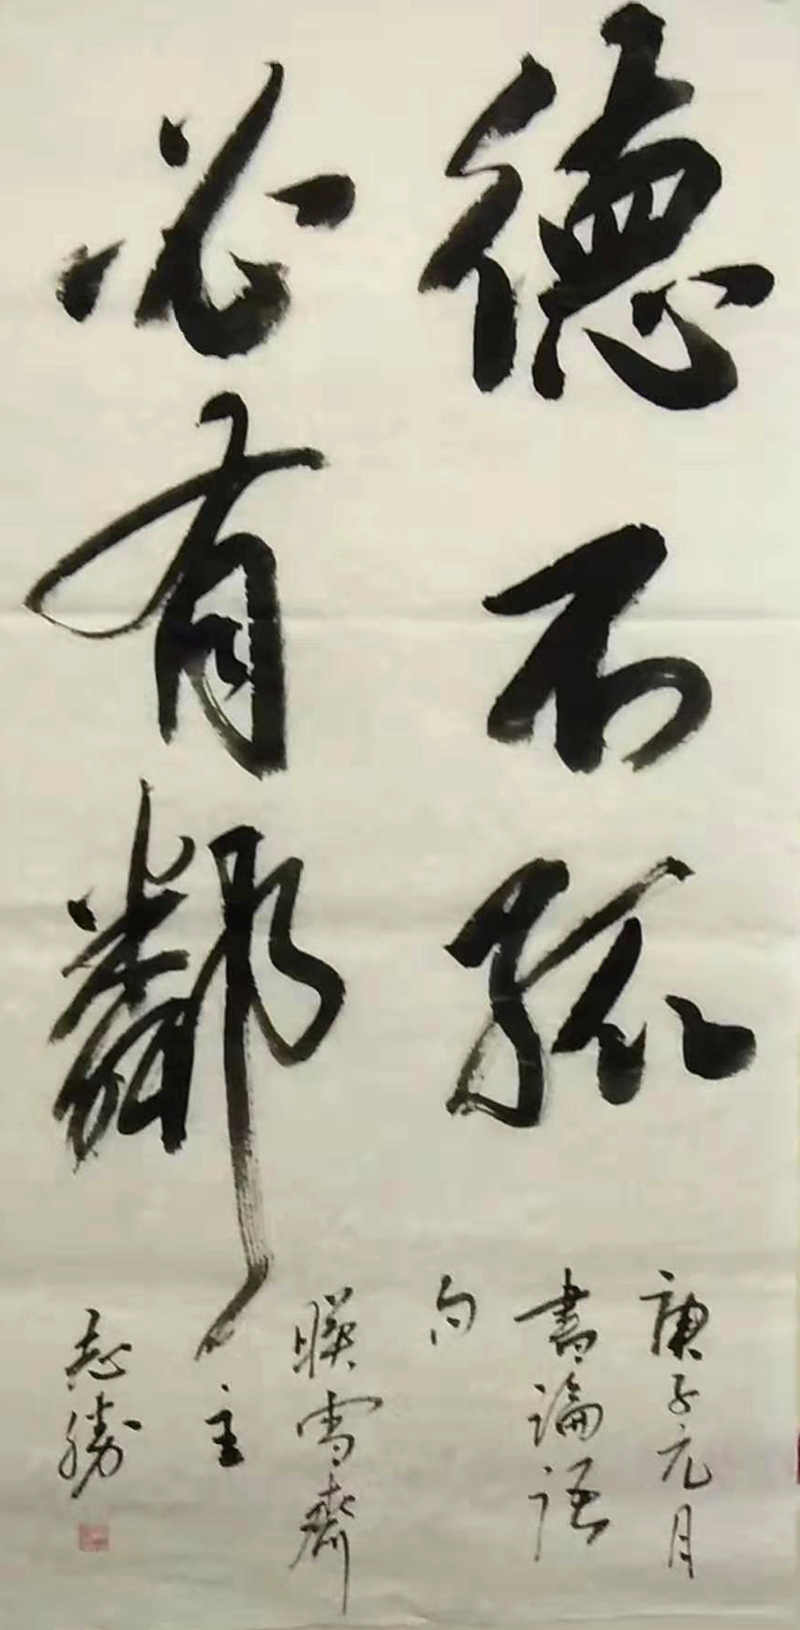 德不孤
必有鄰
庚子元月
書論語
句
映雪齋
主
志勝